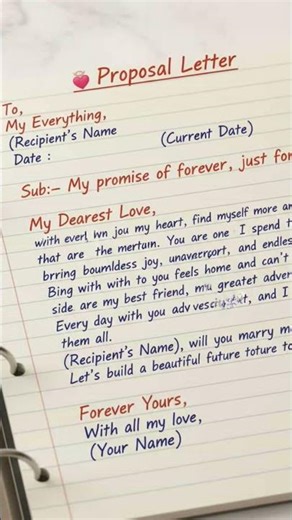 Proposal Letter
To,
My Everything,
(Recipient's Name
(Current Date)
Date :
Sub:- My promise of forever, just for
My Dearest Love,
with my heart, find myself more an
that are the You are one I spend t
joy, and endles
Bing with with to you feels home and can't
side are my best friend, greatet adver
Every day with you and I
them all.
(Recipient's Name), will you marry m
Let's build a beautiful future toture to
Forever Yours,
With all my love,
(Your Name)